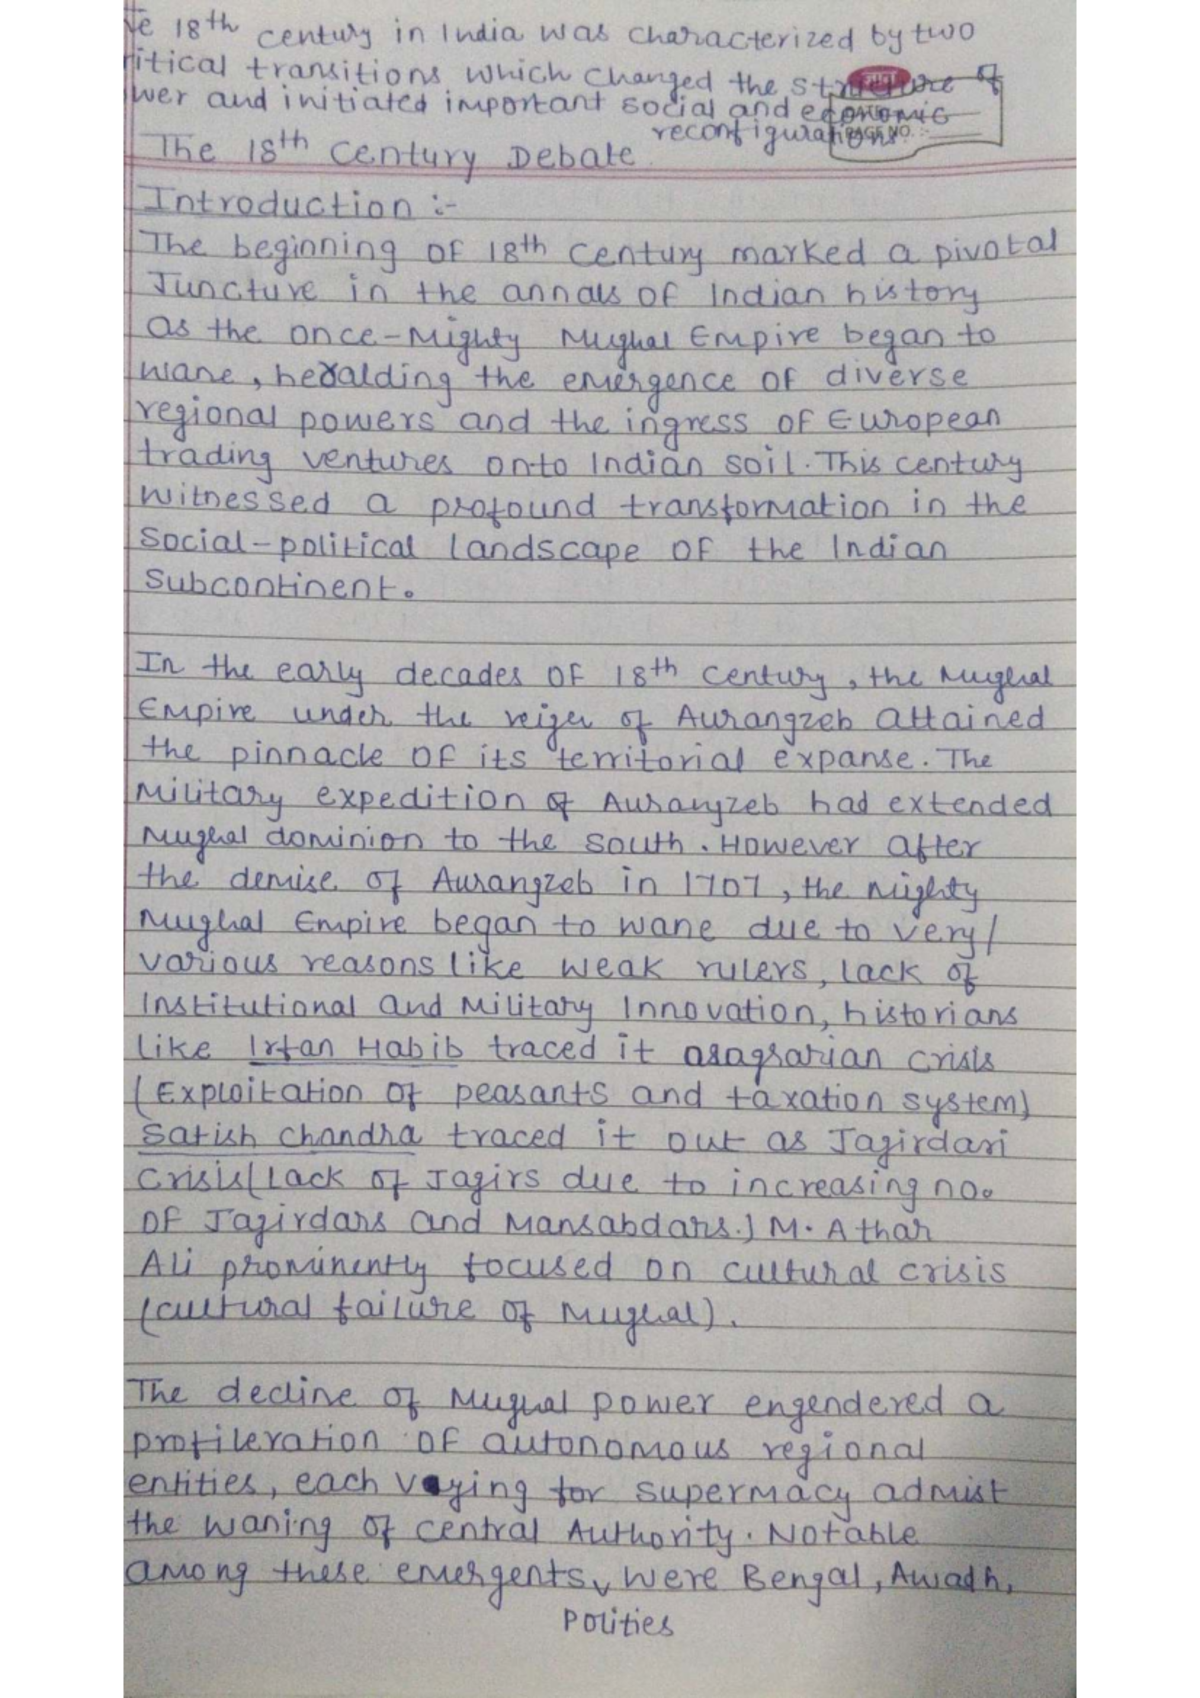 e 18th century in India was characterized by two
itical transitions which changed the structure of
wer and initiated important social and economic
reconfigurations
PAGE NO.
The 18th Century Debate
Introduction :-
The beginning of 18th Century marked a pivotal
Juncture in the annals of Indian history
as the once-Mighty Mughal Empire began to
wane, heralding the emergence of diverse
regional powers and the ingress of European
trading ventures onto Indian soil. This century
witnessed a profound transformation in the
Social-political landscape of the Indian
Subcontinent.
In the early decades of 18th Century, the Mughal
Empire under the reign of Aurangzeb attained
the pinnacle of its territorial expanse. The
Military expedition of Aurangzeb had extended
Mughal dominion to the South. However after
the demise of Aurangzeb in 1707, the mighty
Mughal Empire began to wane due to very/
various reasons like weak rulers, lack of
Institutional and Military Innovation, historians
like Irfan Habib traced it asagrarian crisis
(Exploitation of peasants and taxation system)
Satish Chandra traced it out as Jagirdari
Crisis(Lack of Jagirs due to increasing no.
of Jagirdars and Mansabdars.) M. Athar
Ali prominently focused on cultural crisis
(cultural failure of Mughal).
The decline of Mughal power engendered a
profileration of autonomous regional
entities, each vying for supermacy admist
the waning of central Authority. Notable
among these emergents, were Bengal, Awadh,
Polities